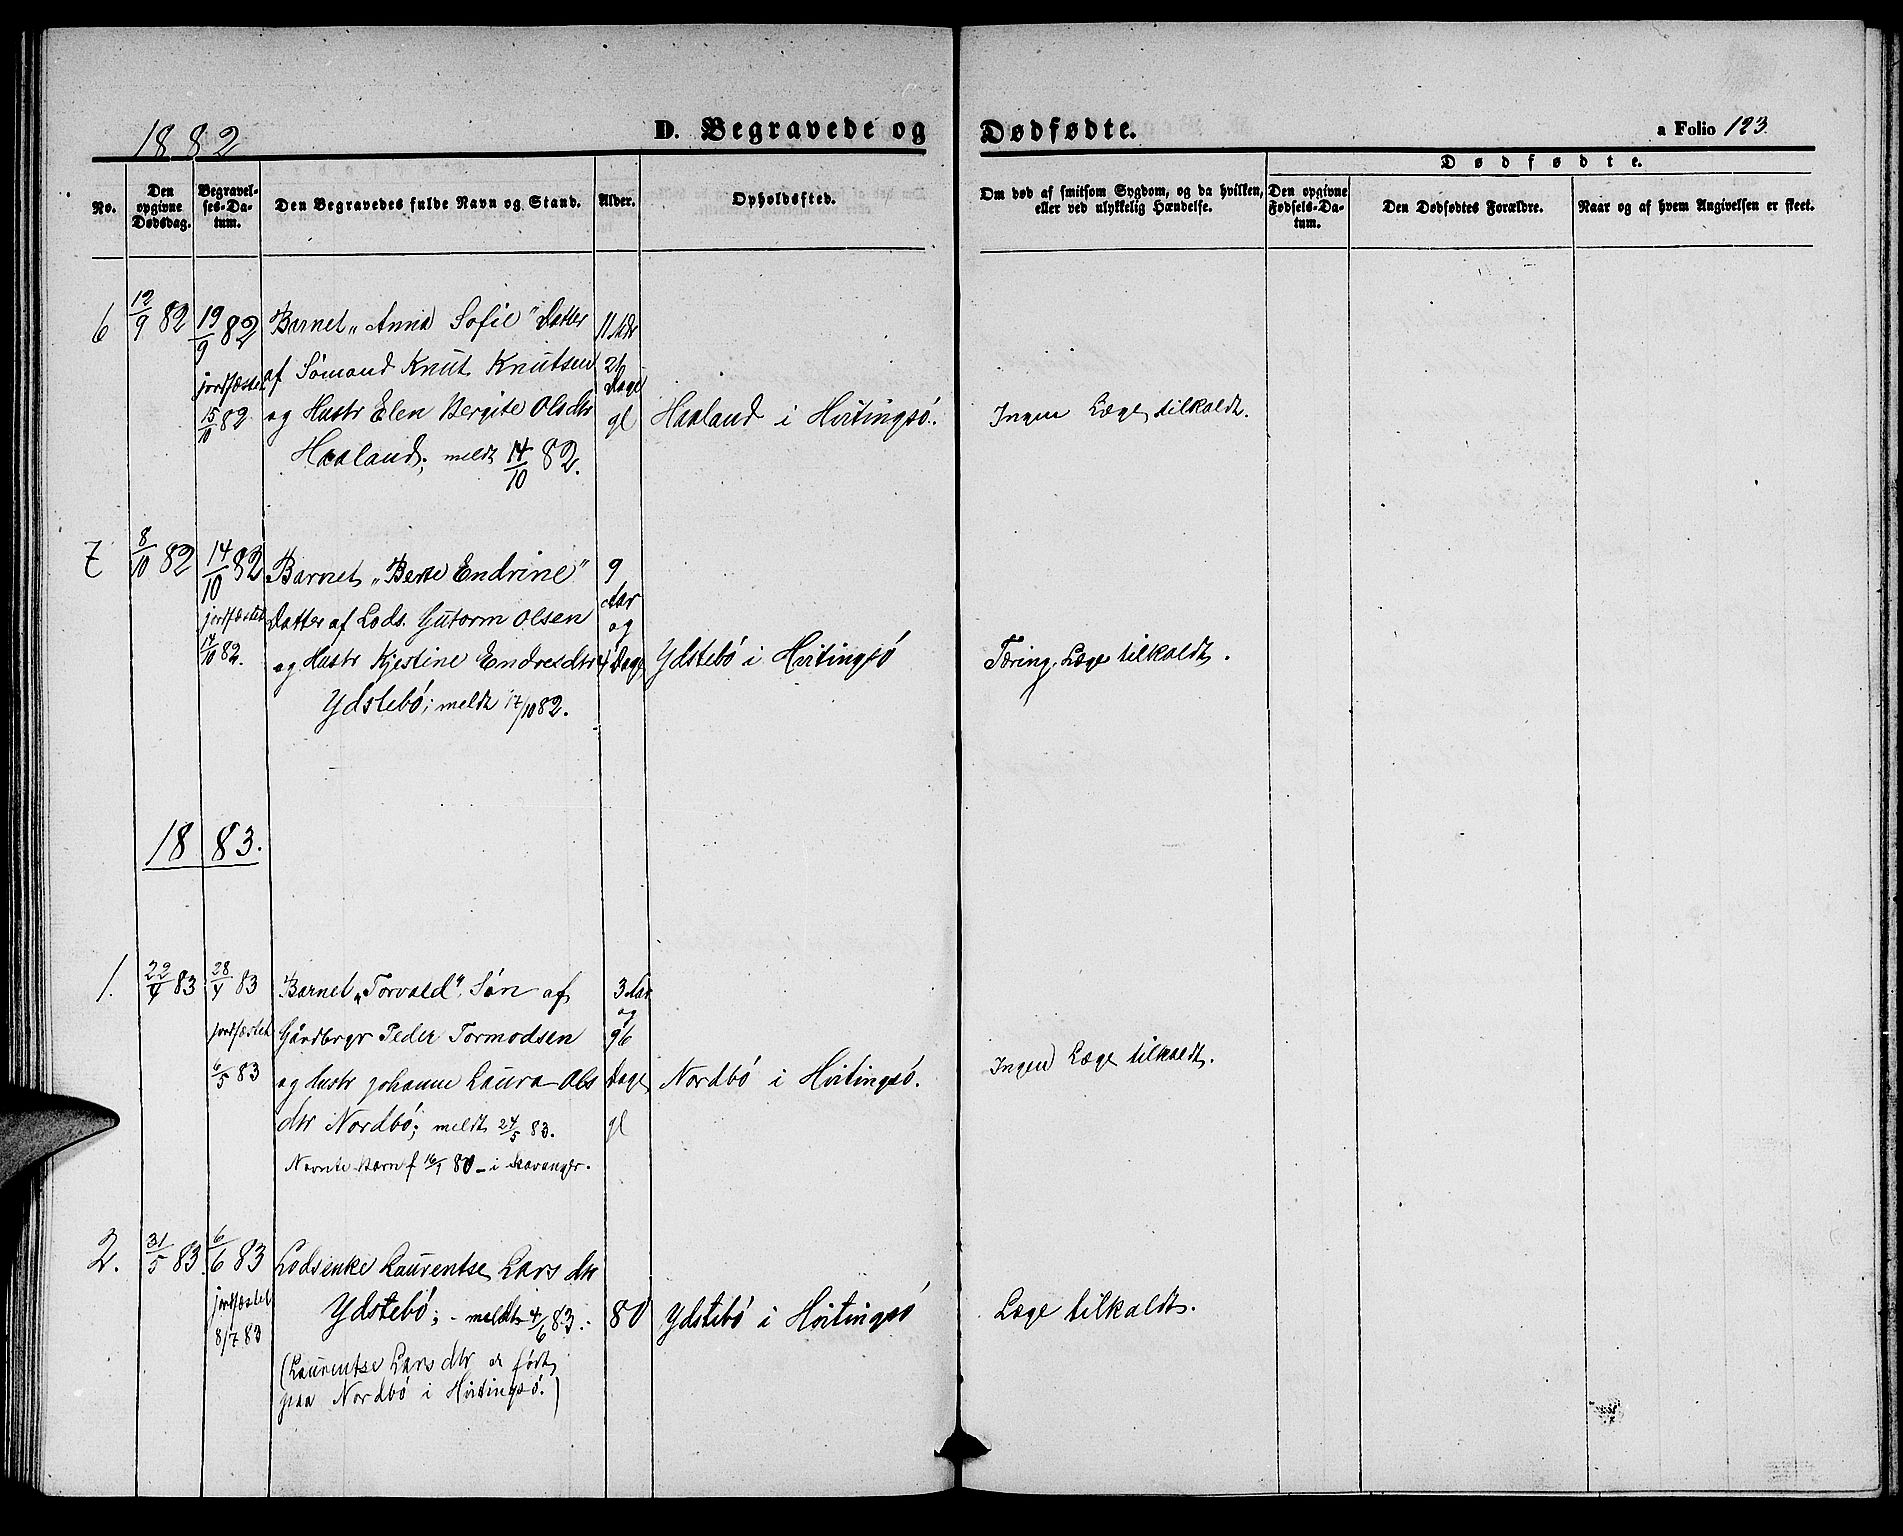 1882
D. Begravede og Dødfødte.
a Folio 123.
No.
Den opgivne Dødsdag.
Begravelses-Datum.
Den Begravedes fulde Navn og Stand.
Alder.
Opholdssted.
Om død af smitsom Sygdom, og da hvilken, eller ved ulykkelig Hændelse.
Dødfødte.
Den opgivne Fødsels-Datum.
Den Dødfødtes Forældre.
Naar og af hvem Angivelsen er skeet.
6 12/9 82 19/9 82 Barnet „Anna Sofie" Datter 11 Mdr
jordfæstet af Sømand Knut Knutsen Dage
15/10 82 og Hustr Elen Bergite Olsdtr gl Haaland i Hvitingsö. Ingen Læge tilkaldt.
Haaland; meldt 14/10 82.
7 8/10 82 14/10 82 Barnet „Berte Endrine" 9
jordfæstet Datter af Lods. Gutorm Olsen Aar og
17/10 82. og Hustr Kjestine Endresdtr 4 Dage Ydstebö i Hvitingsö Tæring. Læge tilkaldt.
Ydstebö; meldt 17/10 82.
1883.
1. 22/4 83 28/4 83 Barnet „Torvald". Søn af 3 Aar og
jordfæstet Gårdbrgr Peder Tormodsen 96
6/5 83 og Hustr Johanne Laura Ols Dage Nordbö i Hvitingsö. Ingen Læge tilkaldt.
dtr Nordbö; meldt 24/5 83. gl
Nævnte Barn f 16/1 80 - i Stavanger.
2. 31/5 83. 6/6 83 Lodsenke Laurentse Lars dtr
jordfæstet Ydstebö; - meldt 4/6 83. 80 Ydstebö i Hvitingsö Læge tilkaldt.
8/7 83
(Laurentse Lars dtr er født
paa Nordbö i Hvitingsö.)